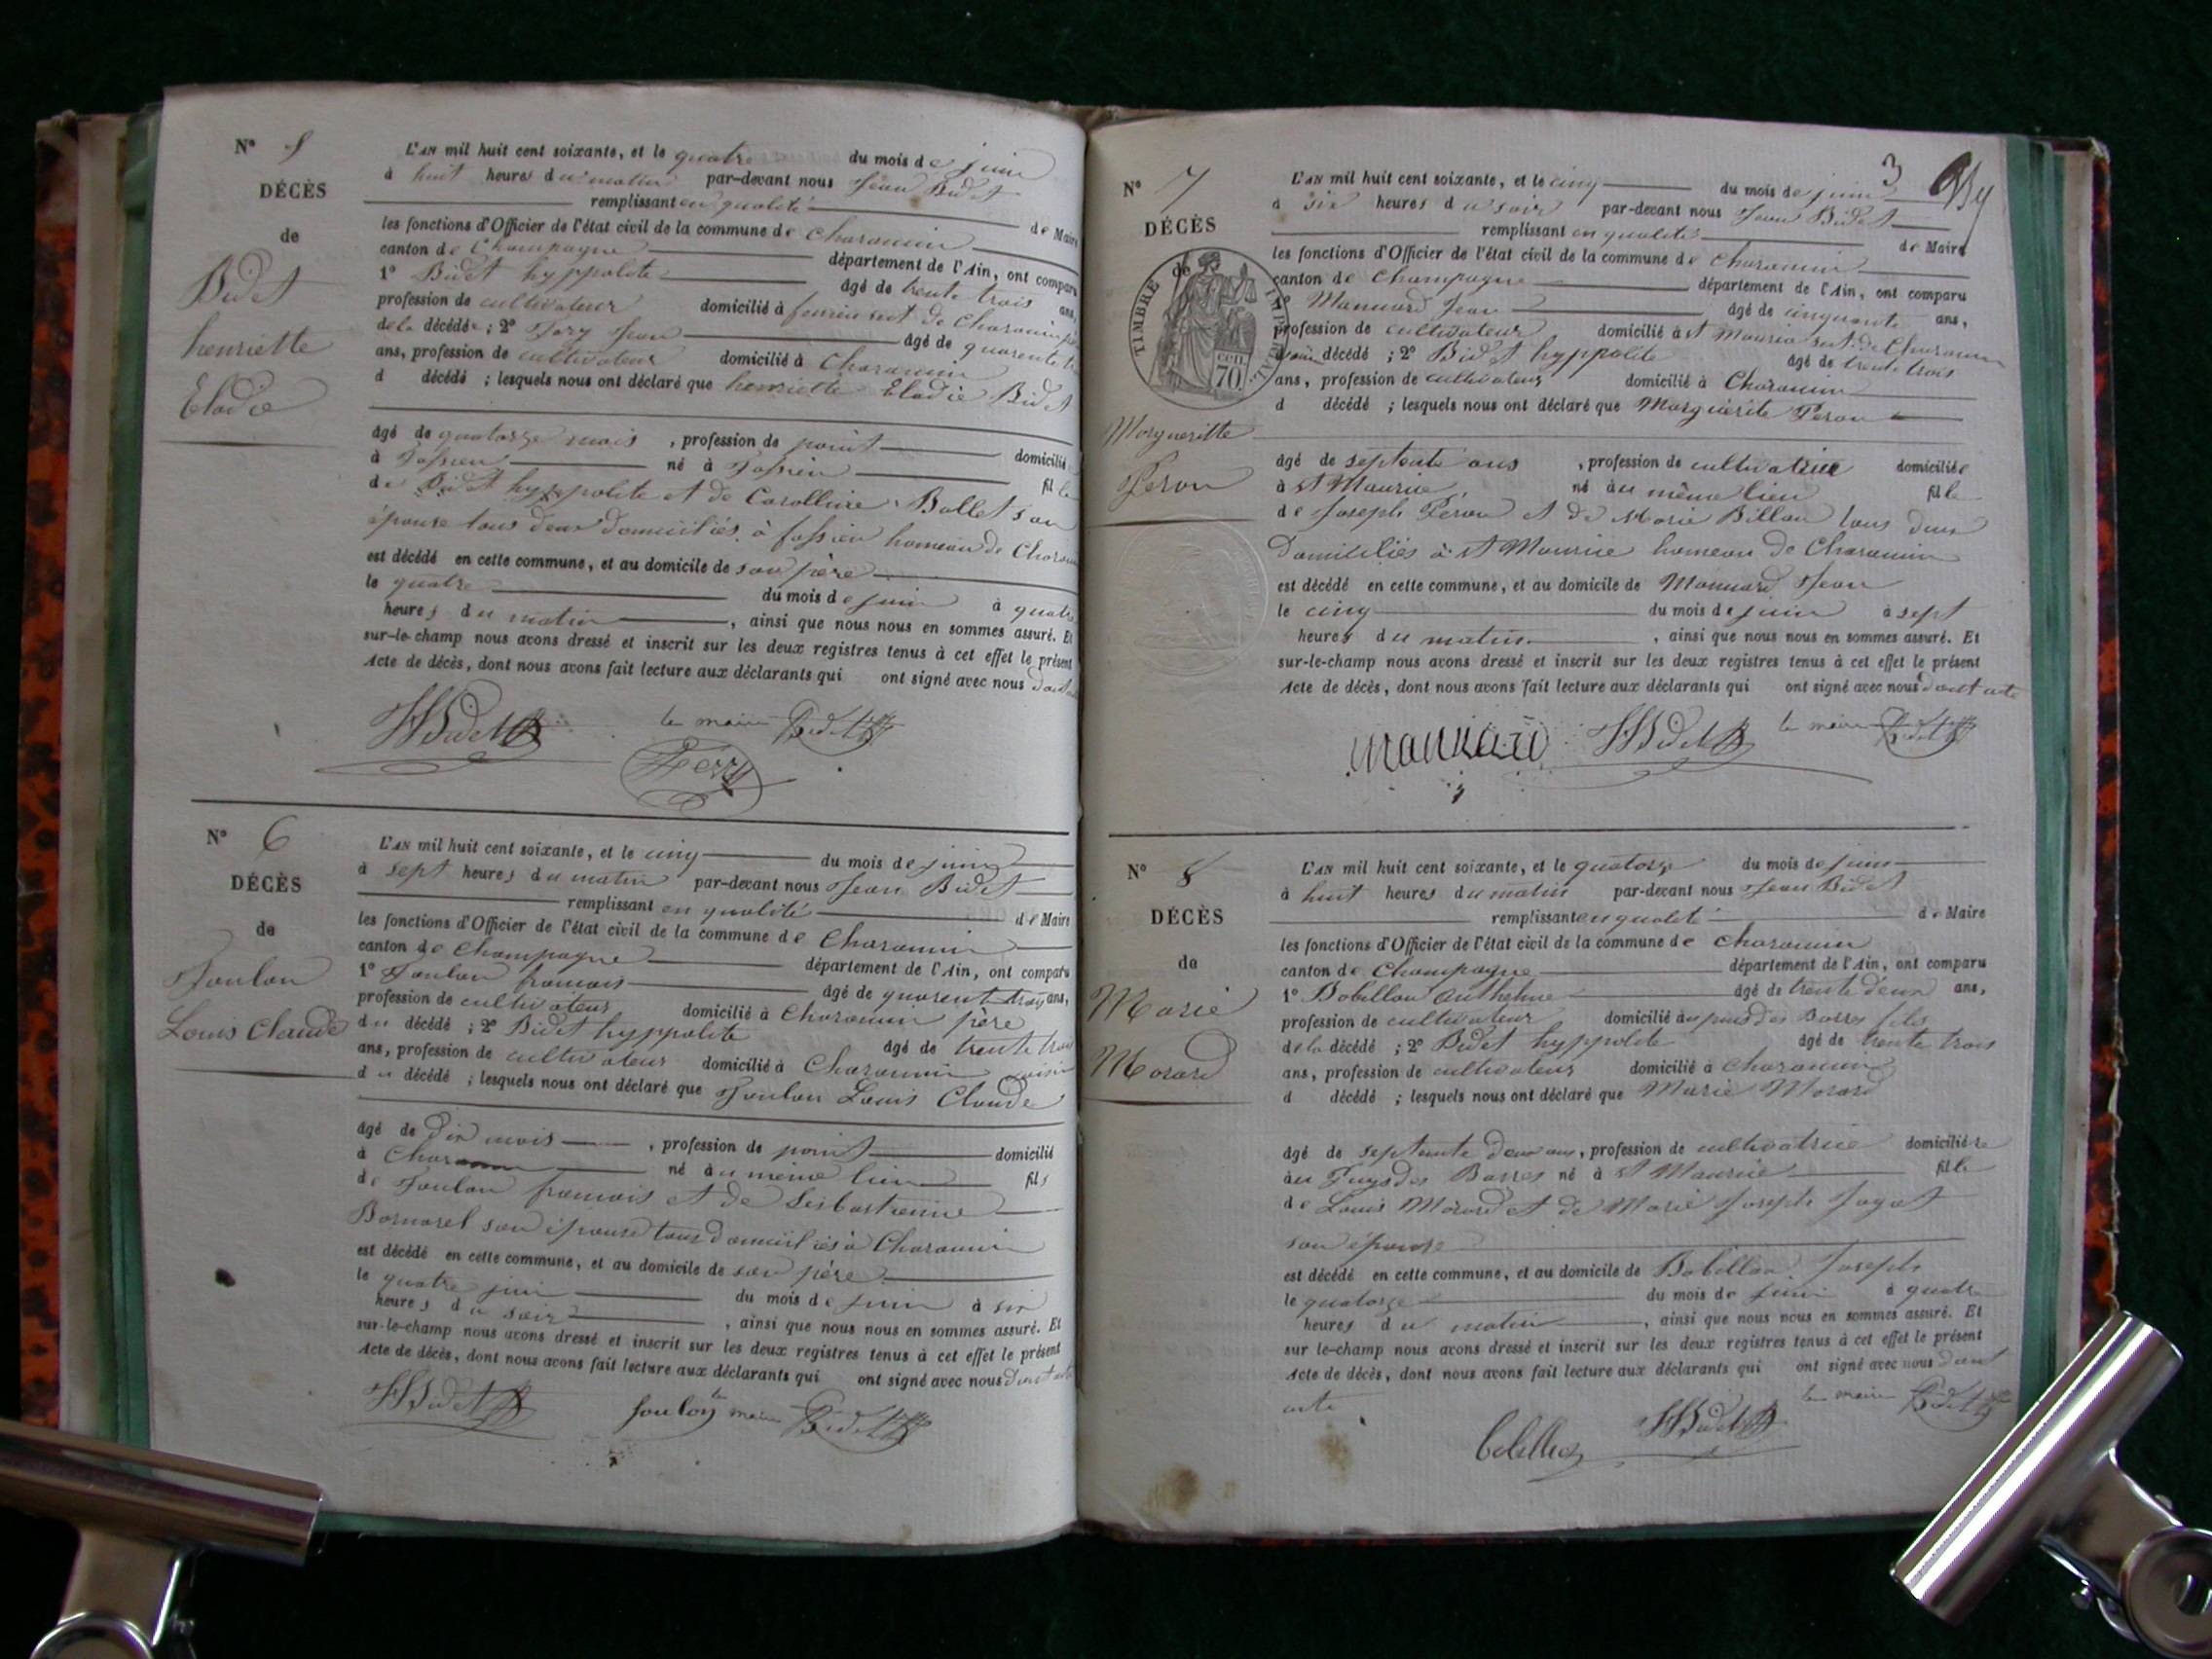 N° 5
DÉCÈS
de
Bidet
henriette
Elodie
L'AN mil huit cent soixante, et le quatre du mois de juin
à huit heures du matin par-devant nous Jean Bidet
remplissant en qualité de Maire
les fonctions d'Officier de l'état civil de la commune de Charancin
canton de Champagne département de l'Ain, ont comparu
1° Bidet hyppolite âgé de trente trois ans,
profession de cultivateur domicilié à de Charancin
de la décédée ; 2° Jean âgé de quarente
ans, profession de cultivateur domicilié à Charancin
d décédé ; lesquels nous ont déclaré que henriette Elodie Bidet
âgé de quatorze mois , profession de point domicilié
à né à fille
de Bidet hyppolite et de Carolline Ballet son
épouse tous deux domiciliés à hameau de
est décédé en cette commune, et au domicile de son père
le quatre du mois de juin à quatre
heures du matin , ainsi que nous nous en sommes assuré. Et
sur-le-champ nous avons dressé et inscrit sur les deux registres tenus à cet effet le présent
Acte de décès, dont nous avons fait lecture aux déclarants qui ont signé avec nous
HBidet le maire Bidet
N° 6
DÉCÈS
de
Joulon
Louis Claude
L'AN mil huit cent soixante, et le cinq du mois de juin
à sept heures du matin par-devant nous Jean Bidet
remplissant en qualité de Maire
les fonctions d'Officier de l'état civil de la commune de Charancin
canton de Champagne département de l'Ain, ont comparu
1° Joulon francois âgé de quarent trois ans,
profession de cultivateur domicilié à Charancin père
du décédé ; 2° Bidet hyppolite âgé de trente trois
ans, profession de cultivateur domicilié à Charancin voisin
du décédé ; lesquels nous ont déclaré que Joulon Louis Claude
âgé de dix mois , profession de point domicilié
à né au même lieu fils
de Joulon francois et de
son épouse tous domiciliés à Charancin
est décédé en cette commune, et au domicile de son père
le quatre juin du mois de juin à six
heures du soir , ainsi que nous nous en sommes assuré. Et
sur-le-champ nous avons dressé et inscrit sur les deux registres tenus à cet effet le présent
Acte de décès, dont nous avons fait lecture aux déclarants qui ont signé avec nous dont acte
HBidet Joulon le maire Bidet
3
N° 7
DÉCÈS
de
TIMBRE IMPÉRIAL
70 cen.
Margueritte
Peron
L'AN mil huit cent soixante, et le cinq du mois de juin
à six heures du soir par-devant nous Jean Bidet
remplissant en qualité de Maire
les fonctions d'Officier de l'état civil de la commune de Charancin
canton de Champagne département de l'Ain, ont comparu
1° Mannard Jean âgé de cinquante ans,
profession de cultivateur domicilié à st Maurice de Charancin
décédé ; 2° Bidet hyppolite âgé de trente trois
ans, profession de cultivateur domicilié à Charancin
d décédé ; lesquels nous ont déclaré que Marguerite Peron
âgé de septente ans , profession de cultivatrice domiciliée
à st Maurice né au même lieu fille
de Joseph Péron et de Marie Billon tous deux
domiciliés à st Maurice hameau de Charancin
est décédé en cette commune, et au domicile de Mannard Jean
le cinq du mois de juin à sept
heures du matin , ainsi que nous nous en sommes assuré. Et
sur-le-champ nous avons dressé et inscrit sur les deux registres tenus à cet effet le présent
Acte de décès, dont nous avons fait lecture aux déclarants qui ont signé avec nous dont acte
mannard HBidet le maire Bidet
N° 8
DÉCÈS
de
Marie
Morard
L'AN mil huit cent soixante, et le quatorze du mois de juin
à huit heures du matin par-devant nous Jean Bidet
remplissant en qualité de Maire
les fonctions d'Officier de l'état civil de la commune de Charancin
canton de Champagne département de l'Ain, ont comparu
1° Bobillon Anthelme âgé de trente deux ans,
profession de cultivateur domicilié au puis des Barres fils
de la décédé ; 2° Bidet hyppolite âgé de trente trois
ans, profession de cultivateur domicilié à Charancin
d décédé ; lesquels nous ont déclaré que Marie Morard
âgé de septente deux ans, profession de cultivatrice domiciliée
au Puys des Barres né à st Maurice fille
de Louis Morard et de Marie Joseph Jogot
son épouse
est décédé en cette commune, et au domicile de Bobillon Joseph
le quatorze du mois de juin à quatre
heures du matin , ainsi que nous nous en sommes assuré. Et
sur le-champ nous avons dressé et inscrit sur les deux registres tenus à cet effet le présent
Acte de décès, dont nous avons fait lecture aux déclarants qui ont signé avec nous dont
acte
HBidet le maire Bidet